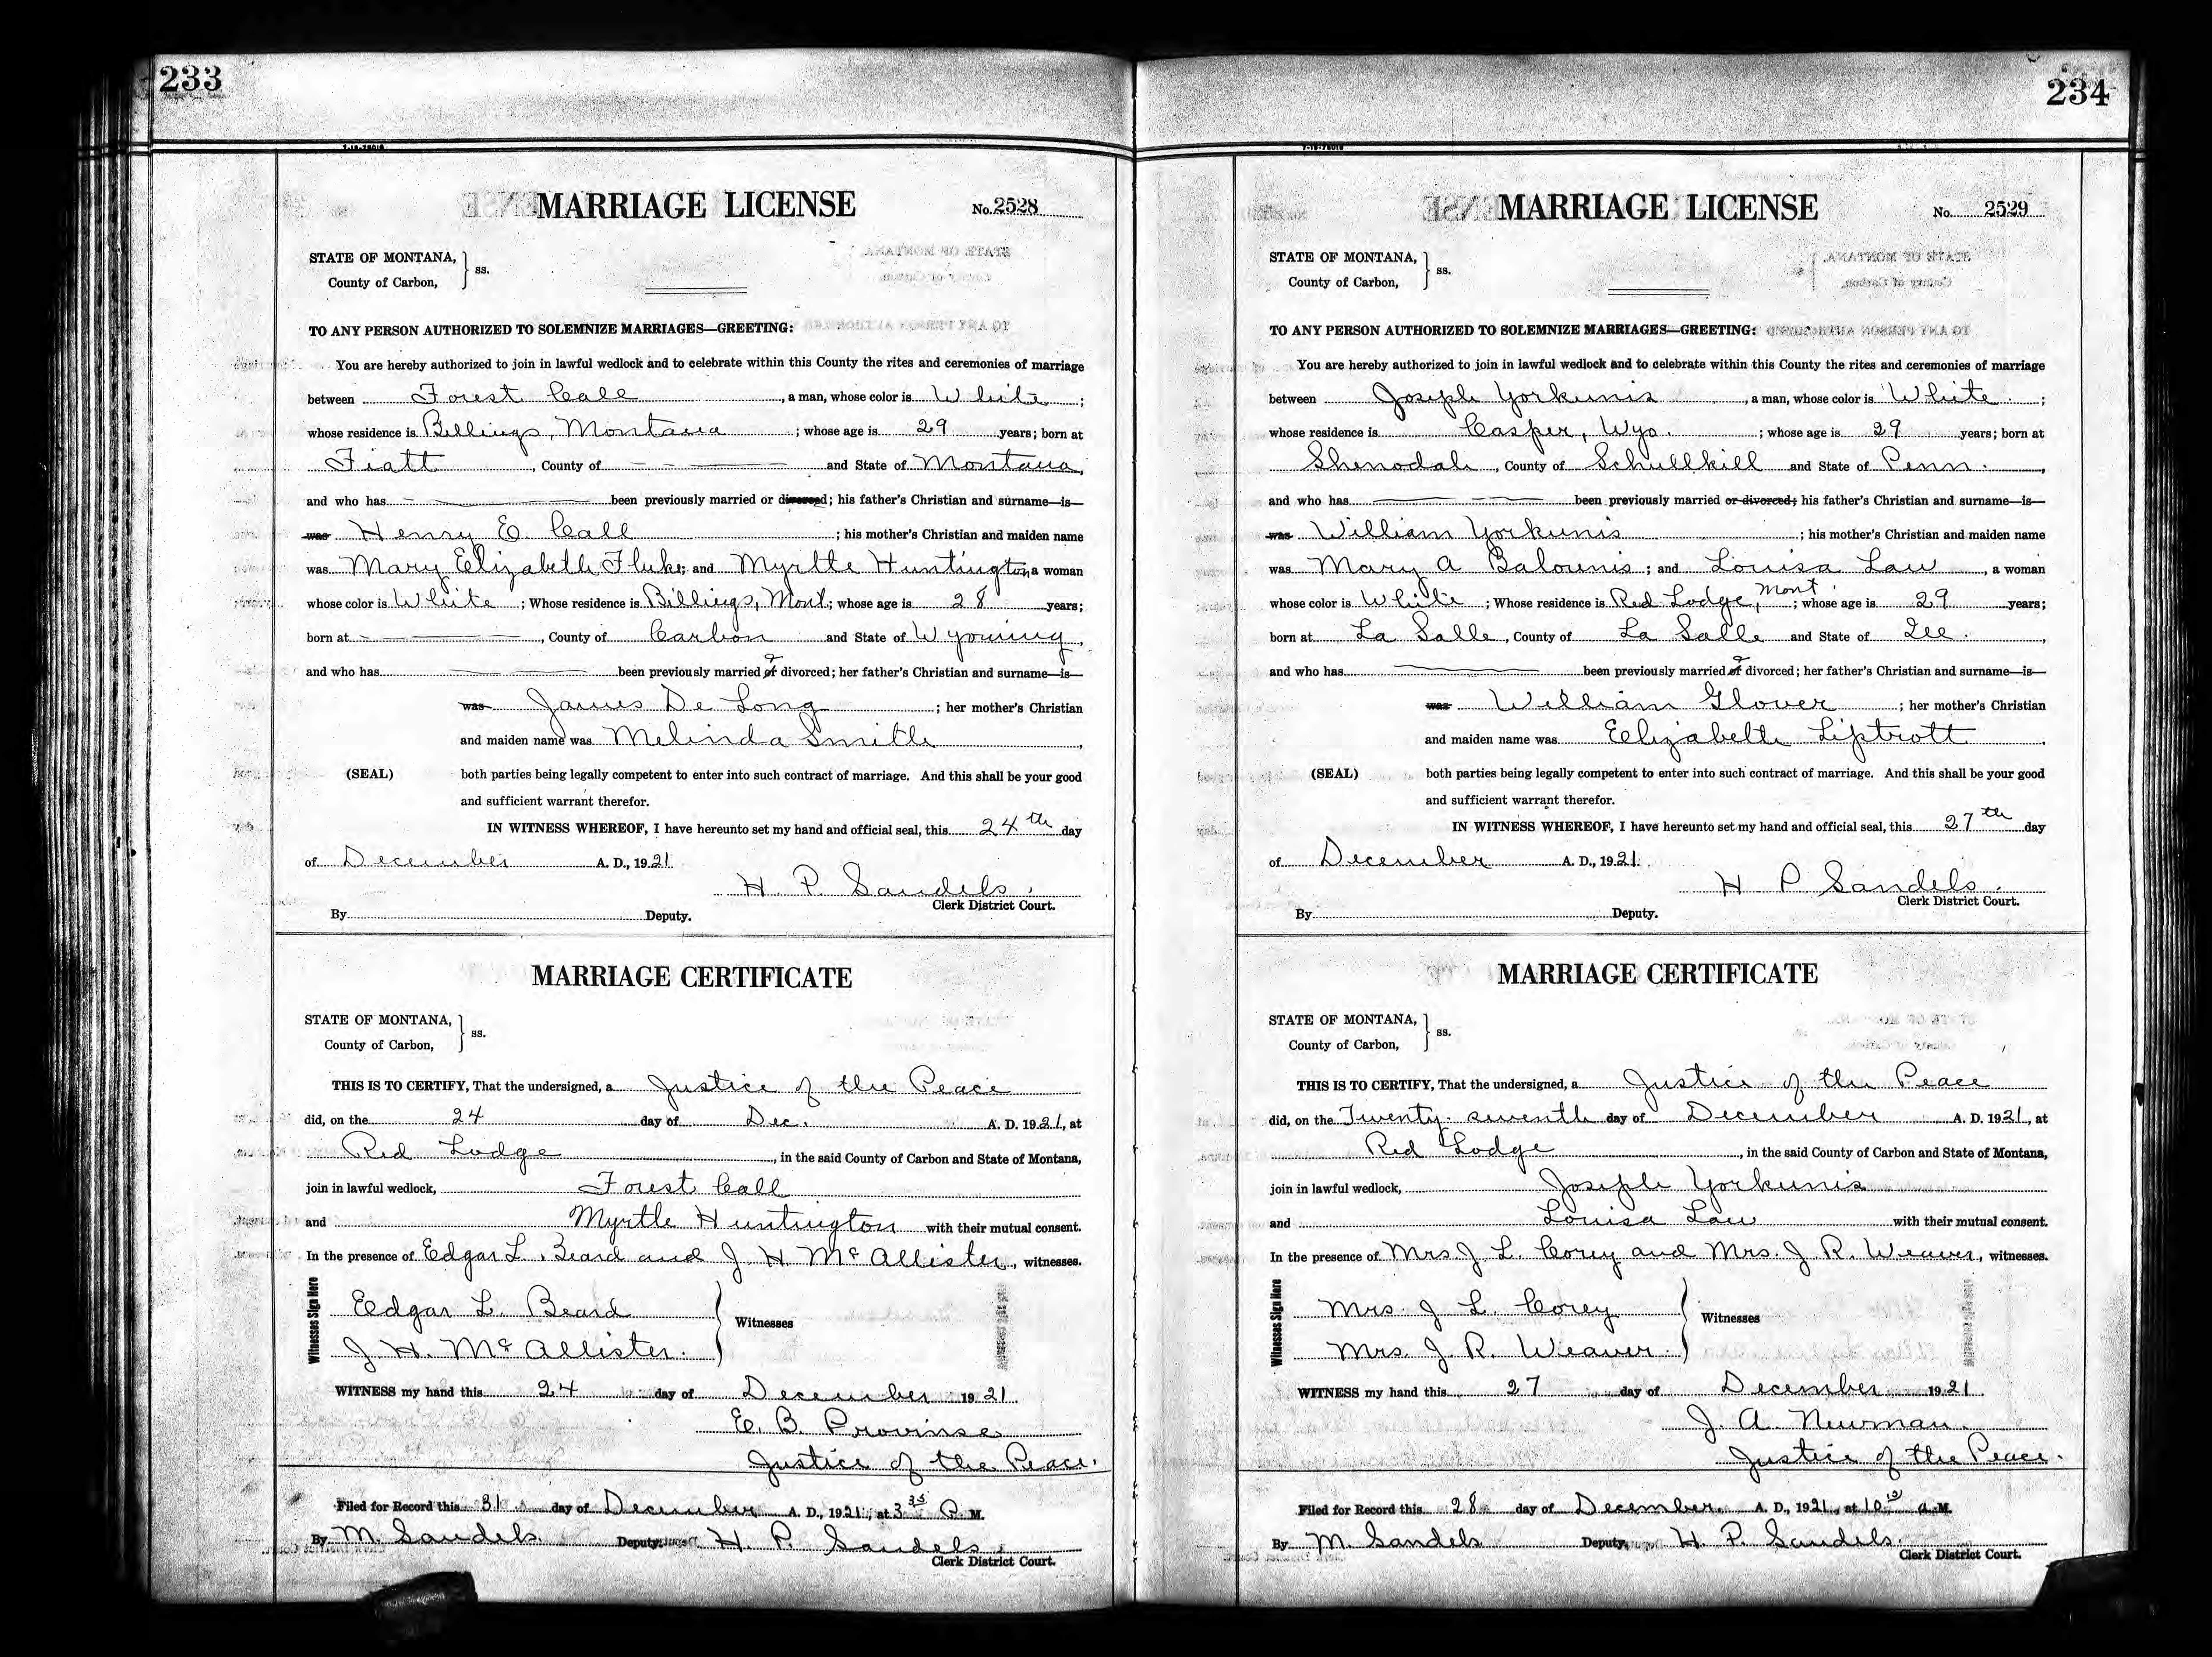 233
7-19-75019
MARRIAGE LICENSE No. 2528
STATE OF MONTANA, } ss.
County of Carbon,
TO ANY PERSON AUTHORIZED TO SOLEMNIZE MARRIAGES—GREETING:
You are hereby authorized to join in lawful wedlock and to celebrate within this County the rites and ceremonies of marriage
between Forest Call, a man, whose color is White;
whose residence is Billings, Montana; whose age is 29 years; born at
Fiatt, County of — and State of Montana,
and who has — been previously married or divorced; his father's Christian and surname—is—
was Henry E. Call; his mother's Christian and maiden name
was Mary Elizabeth Fluke; and Myrtle Huntington, a woman
whose color is White; Whose residence is Billings, Mont; whose age is 28 years;
born at —, County of Carbon and State of Wyoming,
and who has — been previously married or divorced; her father's Christian and surname—is—
was James De Long; her mother's Christian
and maiden name was Melinda Smith,
(SEAL) both parties being legally competent to enter into such contract of marriage. And this shall be your good
and sufficient warrant therefor.
IN WITNESS WHEREOF, I have hereunto set my hand and official seal, this 24th day
of December A. D., 1921.
H. P. Sandels.
Clerk District Court.
By Deputy.
MARRIAGE CERTIFICATE
STATE OF MONTANA, } ss.
County of Carbon,
THIS IS TO CERTIFY, That the undersigned, a Justice of the Peace
did, on the 24 day of Dec. A. D. 1921, at
Red Lodge, in the said County of Carbon and State of Montana,
join in lawful wedlock, Forest Call
and Myrtle Huntington with their mutual consent.
In the presence of Edgar L. Beard and J H McAllister, witnesses.
Witnesses Sign Here
Edgar L. Beard
J. H. McAllister.
Witnesses
WITNESS my hand this 24 day of December 1921.
E. B. Provinse
Justice of the Peace.
Filed for Record this 31 day of December A. D., 1921, at 3 35 P. M.
By M. Sandels. Deputy. H. P. Sandels.
Clerk District Court.
234
7-19-75019
MARRIAGE LICENSE No. 2529
STATE OF MONTANA, } ss.
County of Carbon,
TO ANY PERSON AUTHORIZED TO SOLEMNIZE MARRIAGES—GREETING:
You are hereby authorized to join in lawful wedlock and to celebrate within this County the rites and ceremonies of marriage
between Joseph Yorkunis, a man, whose color is White;
whose residence is Casper, Wyo.; whose age is 29 years; born at
Shenodah, County of Schullkill and State of Penn.,
and who has — been previously married or divorced; his father's Christian and surname—is—
was William Yorkunis; his mother's Christian and maiden name
was Mary A Balounis; and Louisa Law, a woman
whose color is White; Whose residence is Red Lodge, Mont; whose age is 29 years;
born at La Salle, County of La Salle and State of Ill.,
and who has — been previously married or divorced; her father's Christian and surname—is—
was William Glover; her mother's Christian
and maiden name was Elizabeth Liptrott,
(SEAL) both parties being legally competent to enter into such contract of marriage. And this shall be your good
and sufficient warrant therefor.
IN WITNESS WHEREOF, I have hereunto set my hand and official seal, this 27th day
of December A. D., 1921.
H P Sandels.
Clerk District Court.
By Deputy.
MARRIAGE CERTIFICATE
STATE OF MONTANA, } ss.
County of Carbon,
THIS IS TO CERTIFY, That the undersigned, a Justice of the Peace
did, on the Twenty-seventh day of December A. D. 1921, at
Red Lodge, in the said County of Carbon and State of Montana,
join in lawful wedlock, Joseph Yorkunis
and Louisa Law with their mutual consent.
In the presence of Mrs J L. Corey and Mrs. J R. Weaver, witnesses.
Witnesses Sign Here
Mrs. J L. Corey
Mrs. J. R. Weaver.
Witnesses
WITNESS my hand this 27 day of December 1921.
J. A. Newman.
Justice of the Peace.
Filed for Record this 28 day of December, A. D., 1921, at 10 12 a.M.
By M. Sandels Deputy. H. P. Sandels.
Clerk District Court.